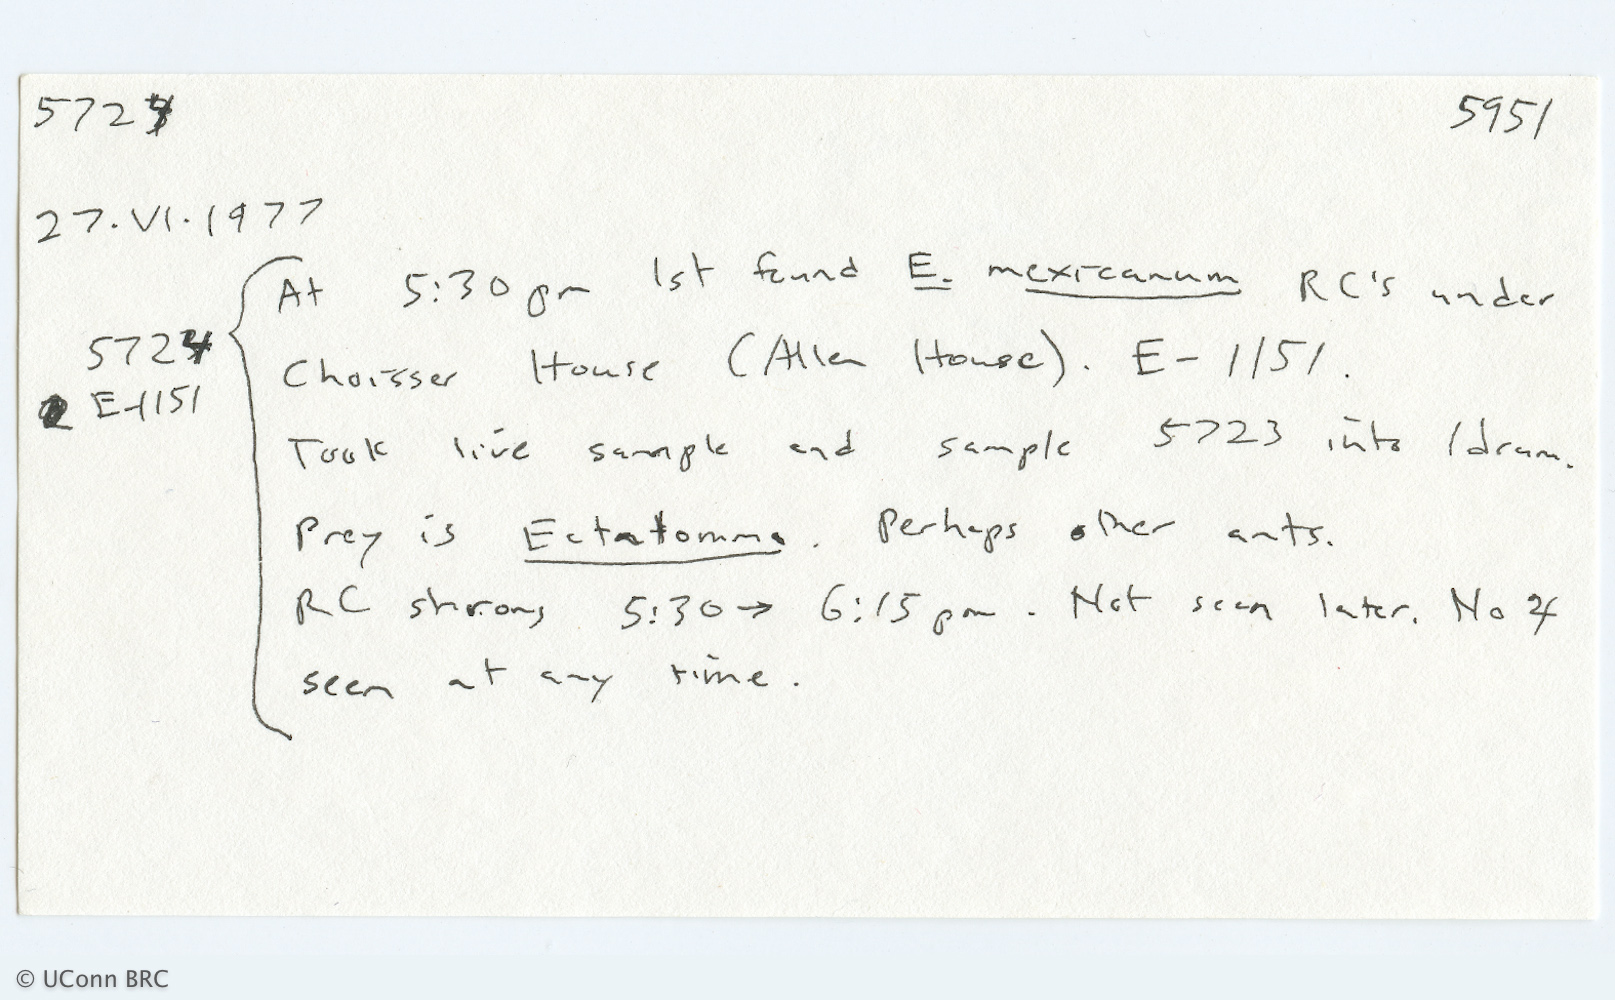 5724 5951
27.VI.1977
At 5:30 pm 1st found E. mexicanum RC's under
5724 Choisser House (Allen House). E-1151.
E-1151
Took live sample and sample 5723 into 1 dram.
Prey is Ectatomma. Perhaps other ants.
RC strong 5:30 → 6:15 pm. Not seen later. No 4
seen at any time.
© UConn BRC